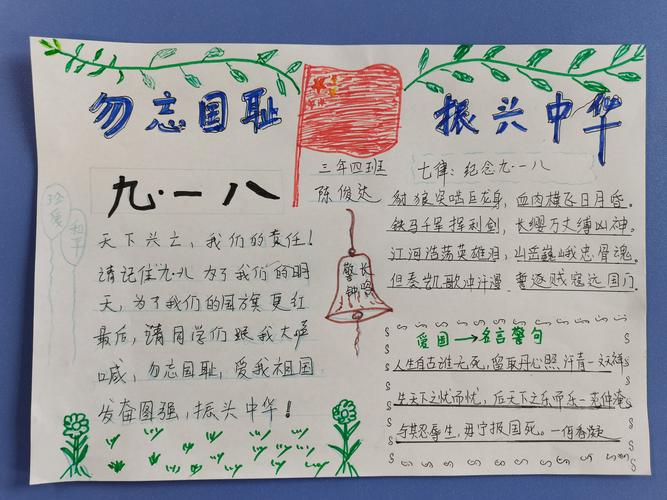 勿忘国耻
振兴中华
九·一八
三年四班
陈俊达
珍爱
和平
天下兴亡，我们的责任！
请记住九·八 为了我们的明
天，为了我们的国旗更红
最后，请同学们跟我大声
喊，勿忘国耻，爱我祖国
发奋图强，振兴中华！
长鸣
警钟
七律：纪念九·一八
豺狼突啮巨龙身，血肉横飞日月昏。
铁马千军挥利剑，长缨万丈缚凶神。
江河浩荡英雄泪，山岳巍峨忠骨魂。
但奏凯歌冲汗漫，誓逐贼寇远国门。
爱国→名言警句
人生自古谁无死，留取丹心照汗青一文天祥
先天下之忧而忧，后天下之乐而乐一范仲淹
与其忍辱生，毋宁报国死。一何香凝